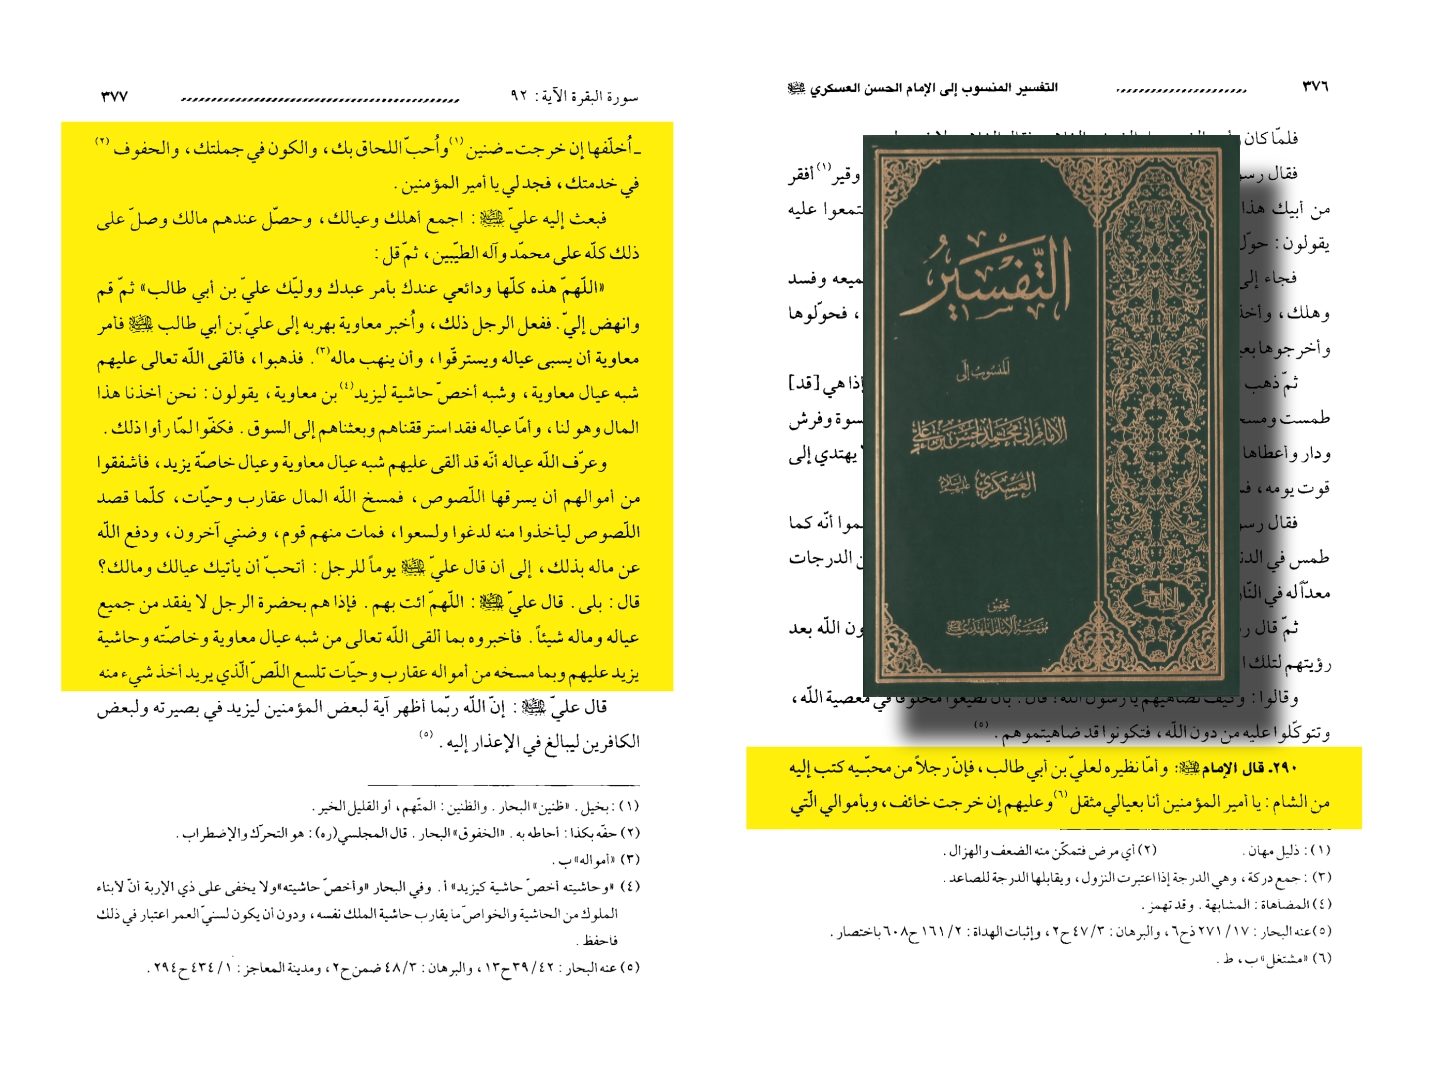 ٣٧٦ التفسير المنسوب إلى الإمام الحسن العسكري ﷺ
فلمّا كان
فقال رسو وقير(١) أفقر
من أبيك هذا تمعوا عليه
يقولون : حوّل
فجاء إلى ميعه وفسد
وهلك، وأخذ ، فحوّلوها
وأخرجوها بعي
ثمّ ذهب إذا هي [قد]
طمست ومسخ سوة وفرش
ودار وأعطاها ّ يهتدي إلى
قوت يومه، ف
فقال رسو موا أنّه كما
طمس في الدن ن الدرجات
معدّاً له في النّار
ثمّ قال ر ون الله بعد
رؤيتهم لتلك ا
وقالوا : وكيف نضاهيهم يا رسول الله؟ قال : بأن تطيعوا مخلوقاً في معصية الله،
وتتوكّلوا عليه من دون الله، فتكونوا قد ضاهيتموهم. (٥)
٢٩٠ـ قال الإمام ﷺ: وأمّا نظيره لعليّ بن أبي طالب، فإنّ رجلاً من محبّيه كتب إليه
من الشام : يا أمير المؤمنين أنا بعيالي مثقل(٦) وعليهم إن خرجت خائف، وبأموالي الّتي
(١) : ذليل مهان. (٢) أي مرض فتمكّن منه الضعف والهزال.
(٣) : جمع دركة، وهي الدرجة إذا اعتبرت النزول، ويقابلها الدرجة للصاعد.
(٤) المضاهاة : المشابهة. وقد تهمز.
(٥) عنه البحار : ١٧ /٢٧١ ذح٦، والبرهان : ٣/ ٤٧ ح٢، وإثبات الهداة : ٢/ ١٦١ ح٦٠٨ باختصار.
(٦) «مشتغل» ب، ط.
التّفسير
المنسوب إلى
الإمام أبي محمد الحسن بن علي
العسكري عليهما السلام
تحقيق
مؤسسة الإمام المهدي
سورة البقرة الآية : ٩٢ ٣٧٧
ـ أُخلّفها إن خرجت ـ ضنين(١) وأُحبّ اللحاق بك، والكون في جملتك، والحفوف(٢)
في خدمتك، فجد لي يا أمير المؤمنين.
فبعث إليه عليّ ﷺ : اجمع أهلك وعيالك، وحصّل عندهم مالك وصلّ على
ذلك كلّه على محمّد وآله الطيّبين، ثمّ قل :
«اللّهمّ هذه كلّها ودائعي عندك بأمر عبدك ووليّك عليّ بن أبي طالب» ثمّ قم
وانهض إليّ. ففعل الرجل ذلك، وأُخبر معاوية بهربه إلى عليّ بن أبي طالب ﷺ فأمر
معاوية أن يسبى عياله ويسترقّوا، وأن ينهب ماله(٣). فذهبوا، فألقى الله تعالى عليهم
شبه عيال معاوية، وشبه أخصّ حاشية ليزيد(٤) بن معاوية، يقولون : نحن أخذنا هذا
المال وهو لنا، وأمّا عياله فقد استرققناهم وبعثناهم إلى السوق. فكفّوا لمّا رأوا ذلك.
وعرّف الله عياله أنّه قد ألقى عليهم شبه عيال معاوية وعيال خاصّة يزيد، فأشفقوا
من أموالهم أن يسرقها اللّصوص، فمسخ الله المال عقارب وحيّات، كلّما قصد
اللّصوص ليأخذوا منه لدغوا ولسعوا، فمات منهم قوم، وضني آخرون، ودفع الله
عن ماله بذلك، إلى أن قال عليّ ﷺ يوماً للرجل : أتحبّ أن يأتيك عيالك ومالك؟
قال : بلى. قال عليّ ﷺ : اللّهمّ ائت بهم. فإذا هم بحضرة الرجل لا يفقد من جميع
عياله وماله شيئاً. فأخبروه بما ألقى الله تعالى من شبه عيال معاوية وخاصّته وحاشية
يزيد عليهم وبما مسخه من أمواله عقارب وحيّات تلسع اللّصّ الّذي يريد أخذ شيء منه
قال عليّ ﷺ : إنّ الله ربّما أظهر آية لبعض المؤمنين ليزيد في بصيرته ولبعض
الكافرين ليبالغ في الإعذار إليه. (٥)
(١) : بخيل. «ظنين» البحار. والظنين : المتّهم، أو القليل الخير.
(٢) حفّه بكذا : أحاطه به. «الخفوق» البحار. قال المجلسي(ره) : هو التحرّك والإضطراب.
(٣) «أمواله» ب.
(٤) «وحاشيته أخصّ حاشية كيزيد» أ. وفي البحار «وأخصّ حاشيته» ولا يخفى على ذي الإربة أنّ لابناء
الملوك من الحاشية والخواصّ ما يقارب حاشية الملك نفسه، ودون أن يكون لسنيّ العمر اعتبار في ذلك
فاحفظ.
(٥) عنه البحار : ٤٢/ ٣٩ ح١٣، والبرهان : ٣/ ٤٨ ضمن ح٢، ومدينة المعاجز : ١/ ٤٣٤ ح٢٩٤.